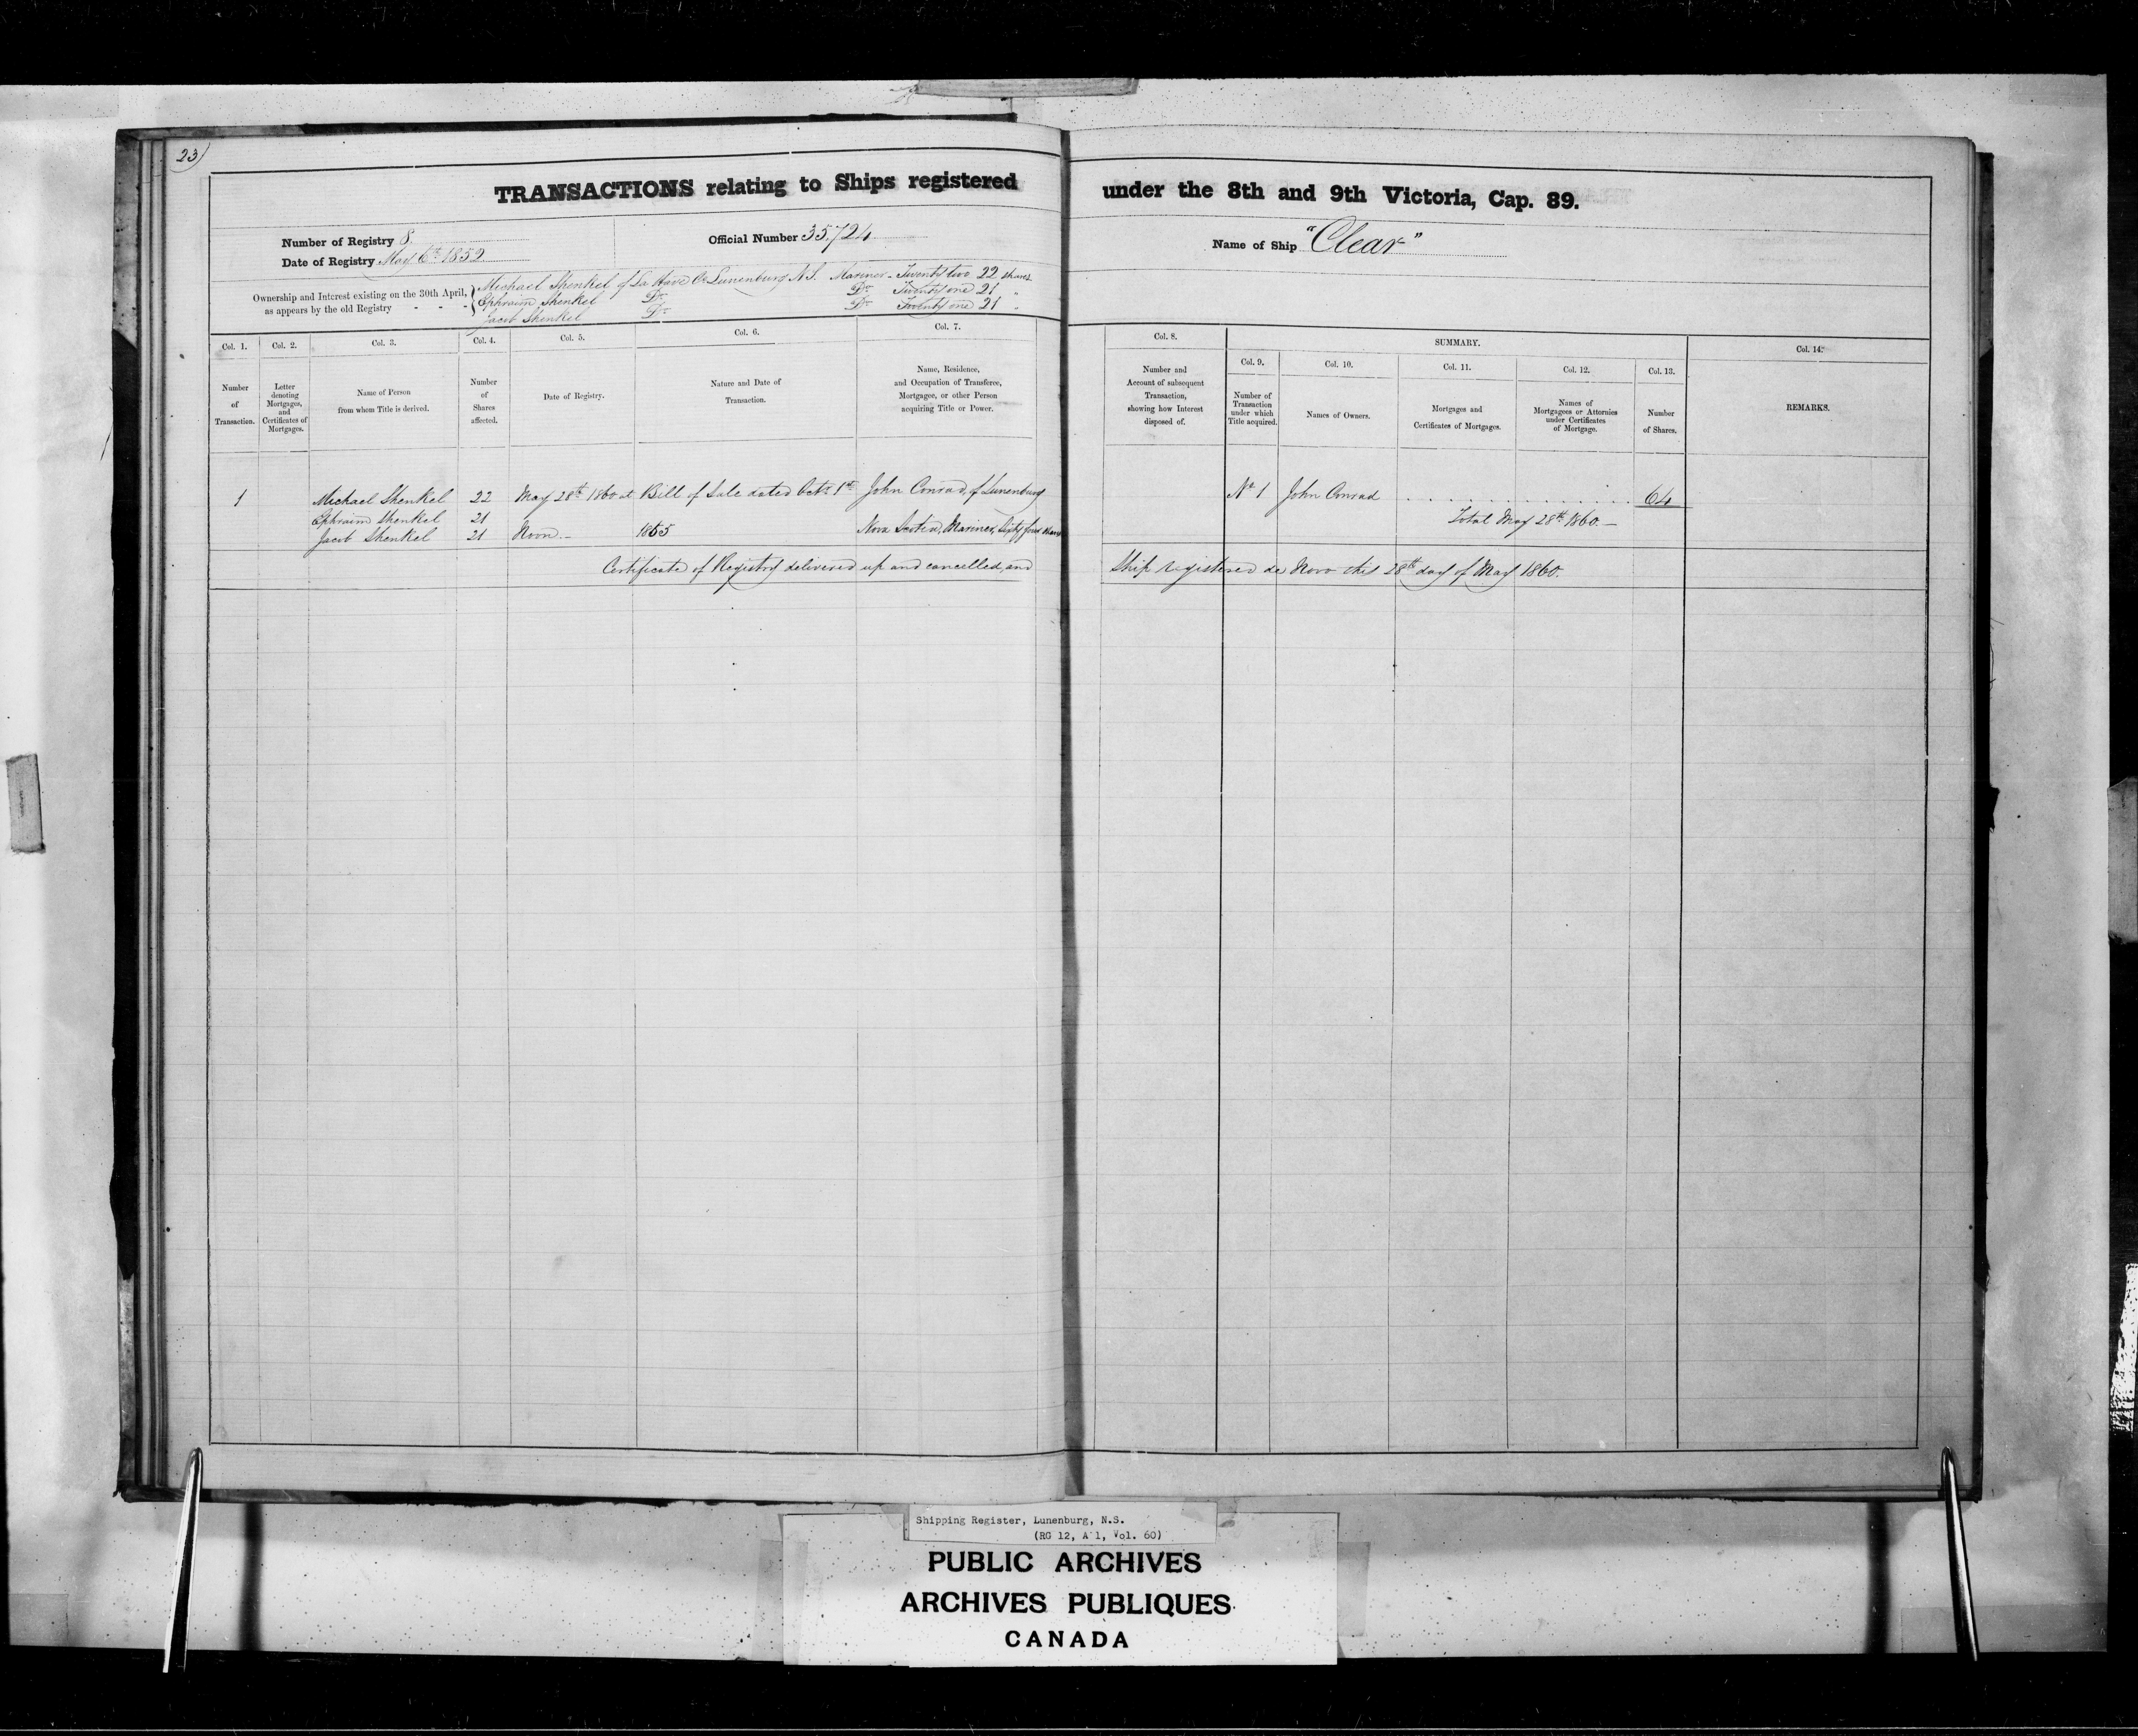 23)
TRANSACTIONS relating to Ships registered under the 8th and 9th Victoria, Cap. 89.
Number of Registry 8.
Official Number 35,724
Name of Ship "Clear"
Date of Registry May 6th 1852
Ownership and Interest existing on the 30th April, as appears by the old Registry - - -
Michael Shenkel of La Have Co Lunenburg N.S. Mariner - Twenty two 22 shares
Ephraim Shenkel Do Do Twenty one 21 "
Jacob Shenkel Do Do Twenty one 21 "
Col. 1. Number of Transaction.
Col. 2. Letter denoting Mortgages, and Certificates of Mortgages.
Col. 3. Name of Person from whom Title is derived.
Col. 4. Number of Shares affected.
Col. 5. Date of Registry.
Col. 6. Nature and Date of Transaction.
Col. 7. Name, Residence, and Occupation of Transferee, Mortgagee, or other Person acquiring Title or Power.
Col. 8. Number and Account of subsequent Transaction, showing how Interest disposed of.
SUMMARY.
Col. 9. Number of Transaction under which Title acquired.
Col. 10. Names of Owners.
Col. 11. Mortgages and Certificates of Mortgages.
Col. 12. Names of Mortgagees or Attornies under Certificates of Mortgage.
Col. 13. Number of Shares.
Col. 14. REMARKS.
1 Michael Shenkel 22 May 28th 1860 at Bill of Sale dated Octr 1st John Conrad, of Lunenburg No 1 John Conrad . . . . . . . . . . . . . . . . 64
Ephraim Shenkel 21 Total May 28th 1860. -
Jacob Shenkel 21 Noon. - 1855 Nova Scotia, Mariner, Sixty four shares
Certificate of Registry delivered up and cancelled, and Ship registered de Novo this 28th day of May 1860.
Shipping Register, Lunenburg, N.S.
(RG 12, A 1, Vol. 60)
PUBLIC ARCHIVES
ARCHIVES PUBLIQUES
CANADA